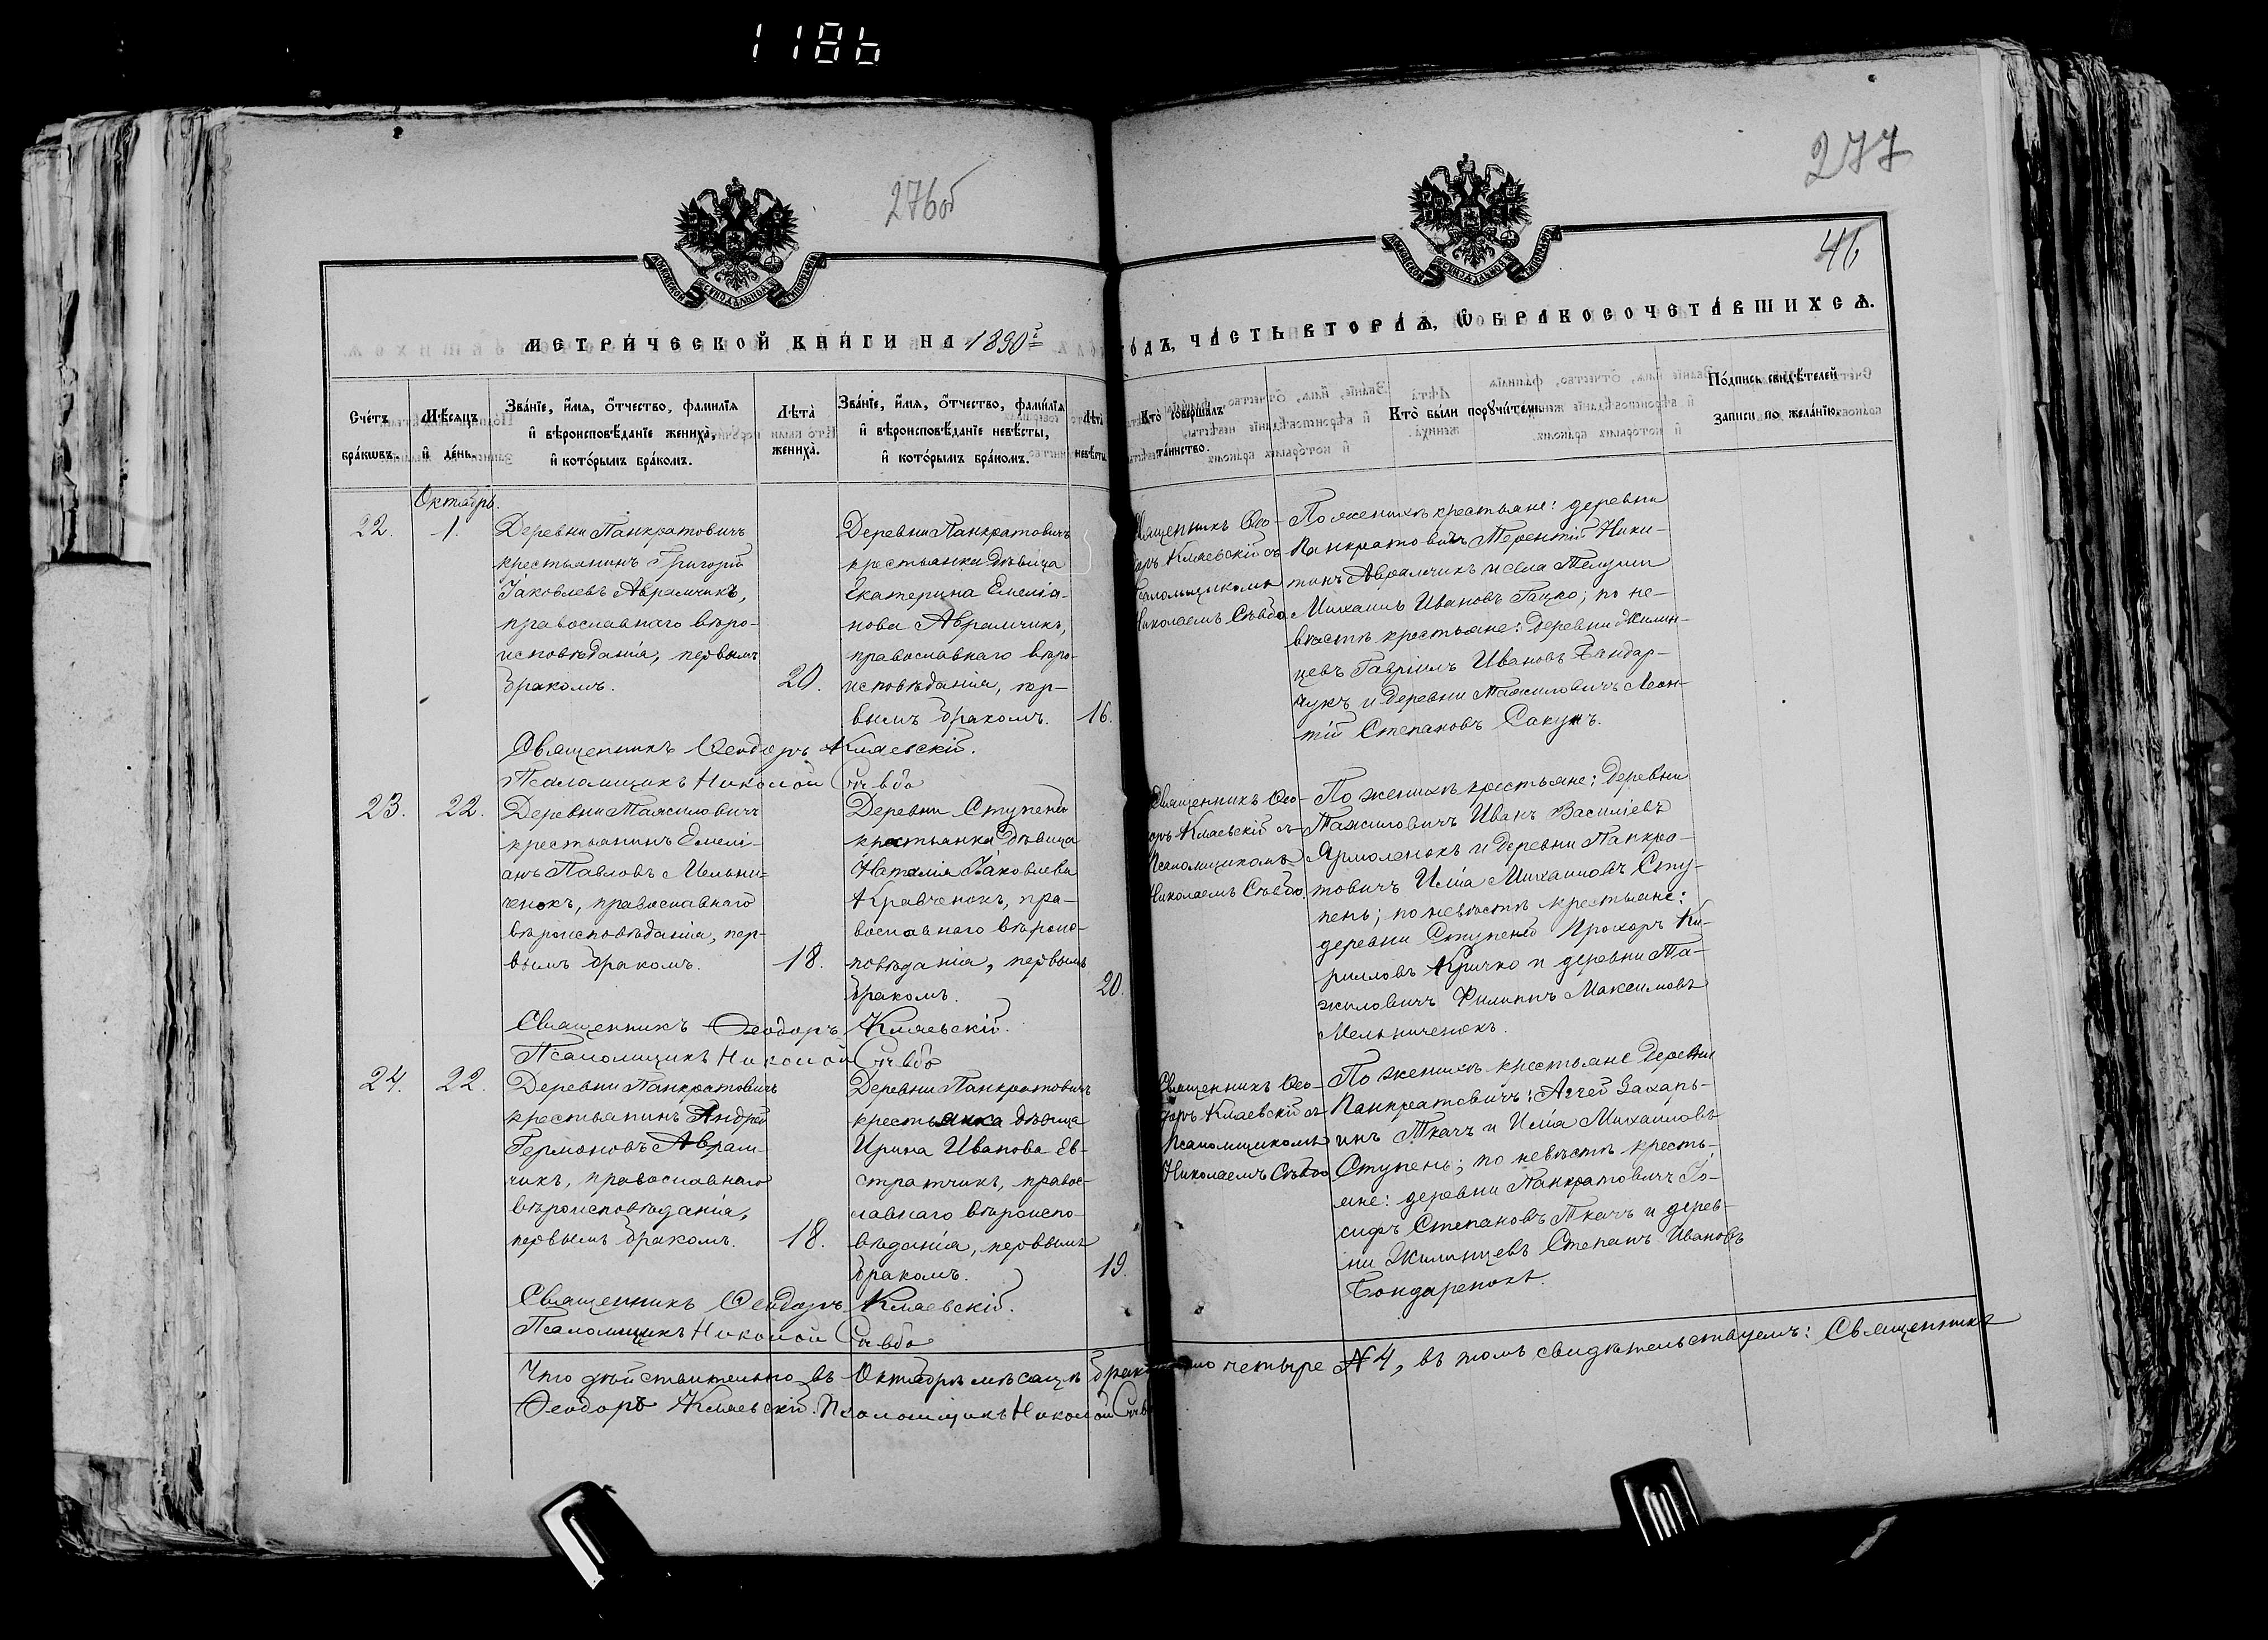 1186
276об
277
46
МЕТРИ́ЧЕСКОЙ КНИ́ГИ НА 1890 го́дъ, ЧА́СТЬ ВТОРА́Я, Ѡ БРАКОСОЧЕТА́ВШИХСЯ.
Сче́тъ бра́кѡвъ.
Мѣ́сяцъ и де́нь.
Зва́нїе, и́мя, о́тчество, фами́лїя и вѣроисповѣ́данїе жениха̀, и кото́рымъ бра́комъ.
Лѣта̀ жениха̀.
Зва́нїе, и́мя, о́тчество, фами́лїя и вѣроисповѣ́данїе невѣ́сты, и кото́рымъ бра́комъ.
Лѣта̀ невѣ́сты
Кто̀ соверша́лъ та́инство.
Кто̀ бы́ли поручи́тели.
По́дпись свидѣ́телей записи по жела́нїю.
Октябрь.
22.
1.
Деревни Панкратовичъ
крестьянинъ Григорій
Іаковлевъ Абрамчикъ,
православнаго вѣро-
исповѣданія, первымъ
бракомъ.
20.
Деревни Панкратовичъ
крестьянка дѣвица
Екатерина Емелія-
нова Абрамчикъ,
православнаго вѣро-
исповѣданія, пер-
вымъ бракомъ.
16.
Священникъ Ѳео-
доръ Кмяевскій съ
Псаломщикомъ
Николаемъ Съѣдо.
По женихѣ крестьяне: деревни
Панкратовичъ Терентій Ники-
тинъ Абрамчикъ и села Телуши
Михаилъ Ивановъ Гацко; по не-
вѣстѣ крестьяне: деревни Жилин-
цевъ Гавріилъ Ивановъ Бандар-
чукъ и деревни Тажиловичъ Леон-
тій Степановъ Сакунъ.
Священникъ Ѳеодоръ Кмяевскій.
Псаломщикъ Николай Съѣдо
23.
22.
Деревни Тажиловичъ
крестьянинъ Емелі-
анъ Павловъ Мельни-
ченокъ, православнаго
вѣроисповѣданія, пер-
вымъ бракомъ.
18.
Деревни Ступеней
крестьянка дѣвица
Наталія Іаковлева
Кравченокъ, пра-
вославнаго вѣроис-
повѣданія, первымъ
бракомъ.
20.
Священникъ Ѳео-
доръ Кмяевскій съ
Псаломщикомъ
Николаемъ Съѣдо.
По женихѣ крестьяне: деревни
Тажиловичъ Иванъ Василіевъ
Ярмоленокъ и деревни Панкра-
товичъ Илія Михаиловъ Сту-
пень; по невѣстѣ крестьяне:
деревни Ступеней Прохоръ Ки-
рилловъ Кричко и деревни Та-
жиловичъ Филиппъ Максимовъ
Мельниченокъ.
Священникъ Ѳеодоръ Кмяевскій.
Псаломщикъ Николай Съѣдо
24.
22.
Деревни Панкратовичъ
крестьянинъ Андрей
Германовъ Абрам-
чикъ, православнаго
вѣроисповѣданія,
первымъ бракомъ.
18.
Деревни Панкратовичъ
крестьянка дѣвица
Ирина Иванова Ев-
стратчикъ, право-
славнаго вѣроиспо-
вѣданія, первымъ
бракомъ.
19.
Священникъ Ѳео-
доръ Кмяевскій съ
Псаломщикомъ
Николаемъ Съѣдо
По женихѣ крестьяне деревни
Панкратовичъ: Аггей Захарь-
инъ Ткачъ и Илія Михаиловъ
Ступень; по невѣстѣ кресть-
яне: деревни Панкратовичъ Іо-
сифъ Степановъ Ткачъ и дерев-
ни Жилинцевъ Степанъ Ивановъ
Бондаренокъ.
Священникъ Ѳеодоръ Кмяевскій.
Псаломщикъ Николай Съѣдо
Что дѣйствительно въ Октябрѣ мѣсяцѣ четыре №4, въ томъ свидѣтельствуемъ: Священникъ
Ѳеодоръ Кмяевскій. Псаломщикъ Николай